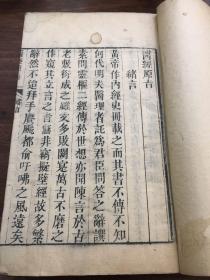 醫經原旨
緒言
黃帝作內經史冊載之而其書不傳不知
何代明夫醫理者託為君臣問答之辭譔
素問靈樞二經傳於世想亦聞陳言於古
老敷衍成之雖文多敗闕實萬古不磨之
作窺其立言之旨無非竊擬壁經故多繁
辭然不迨拜手賡颺都俞吁咈之風遠矣